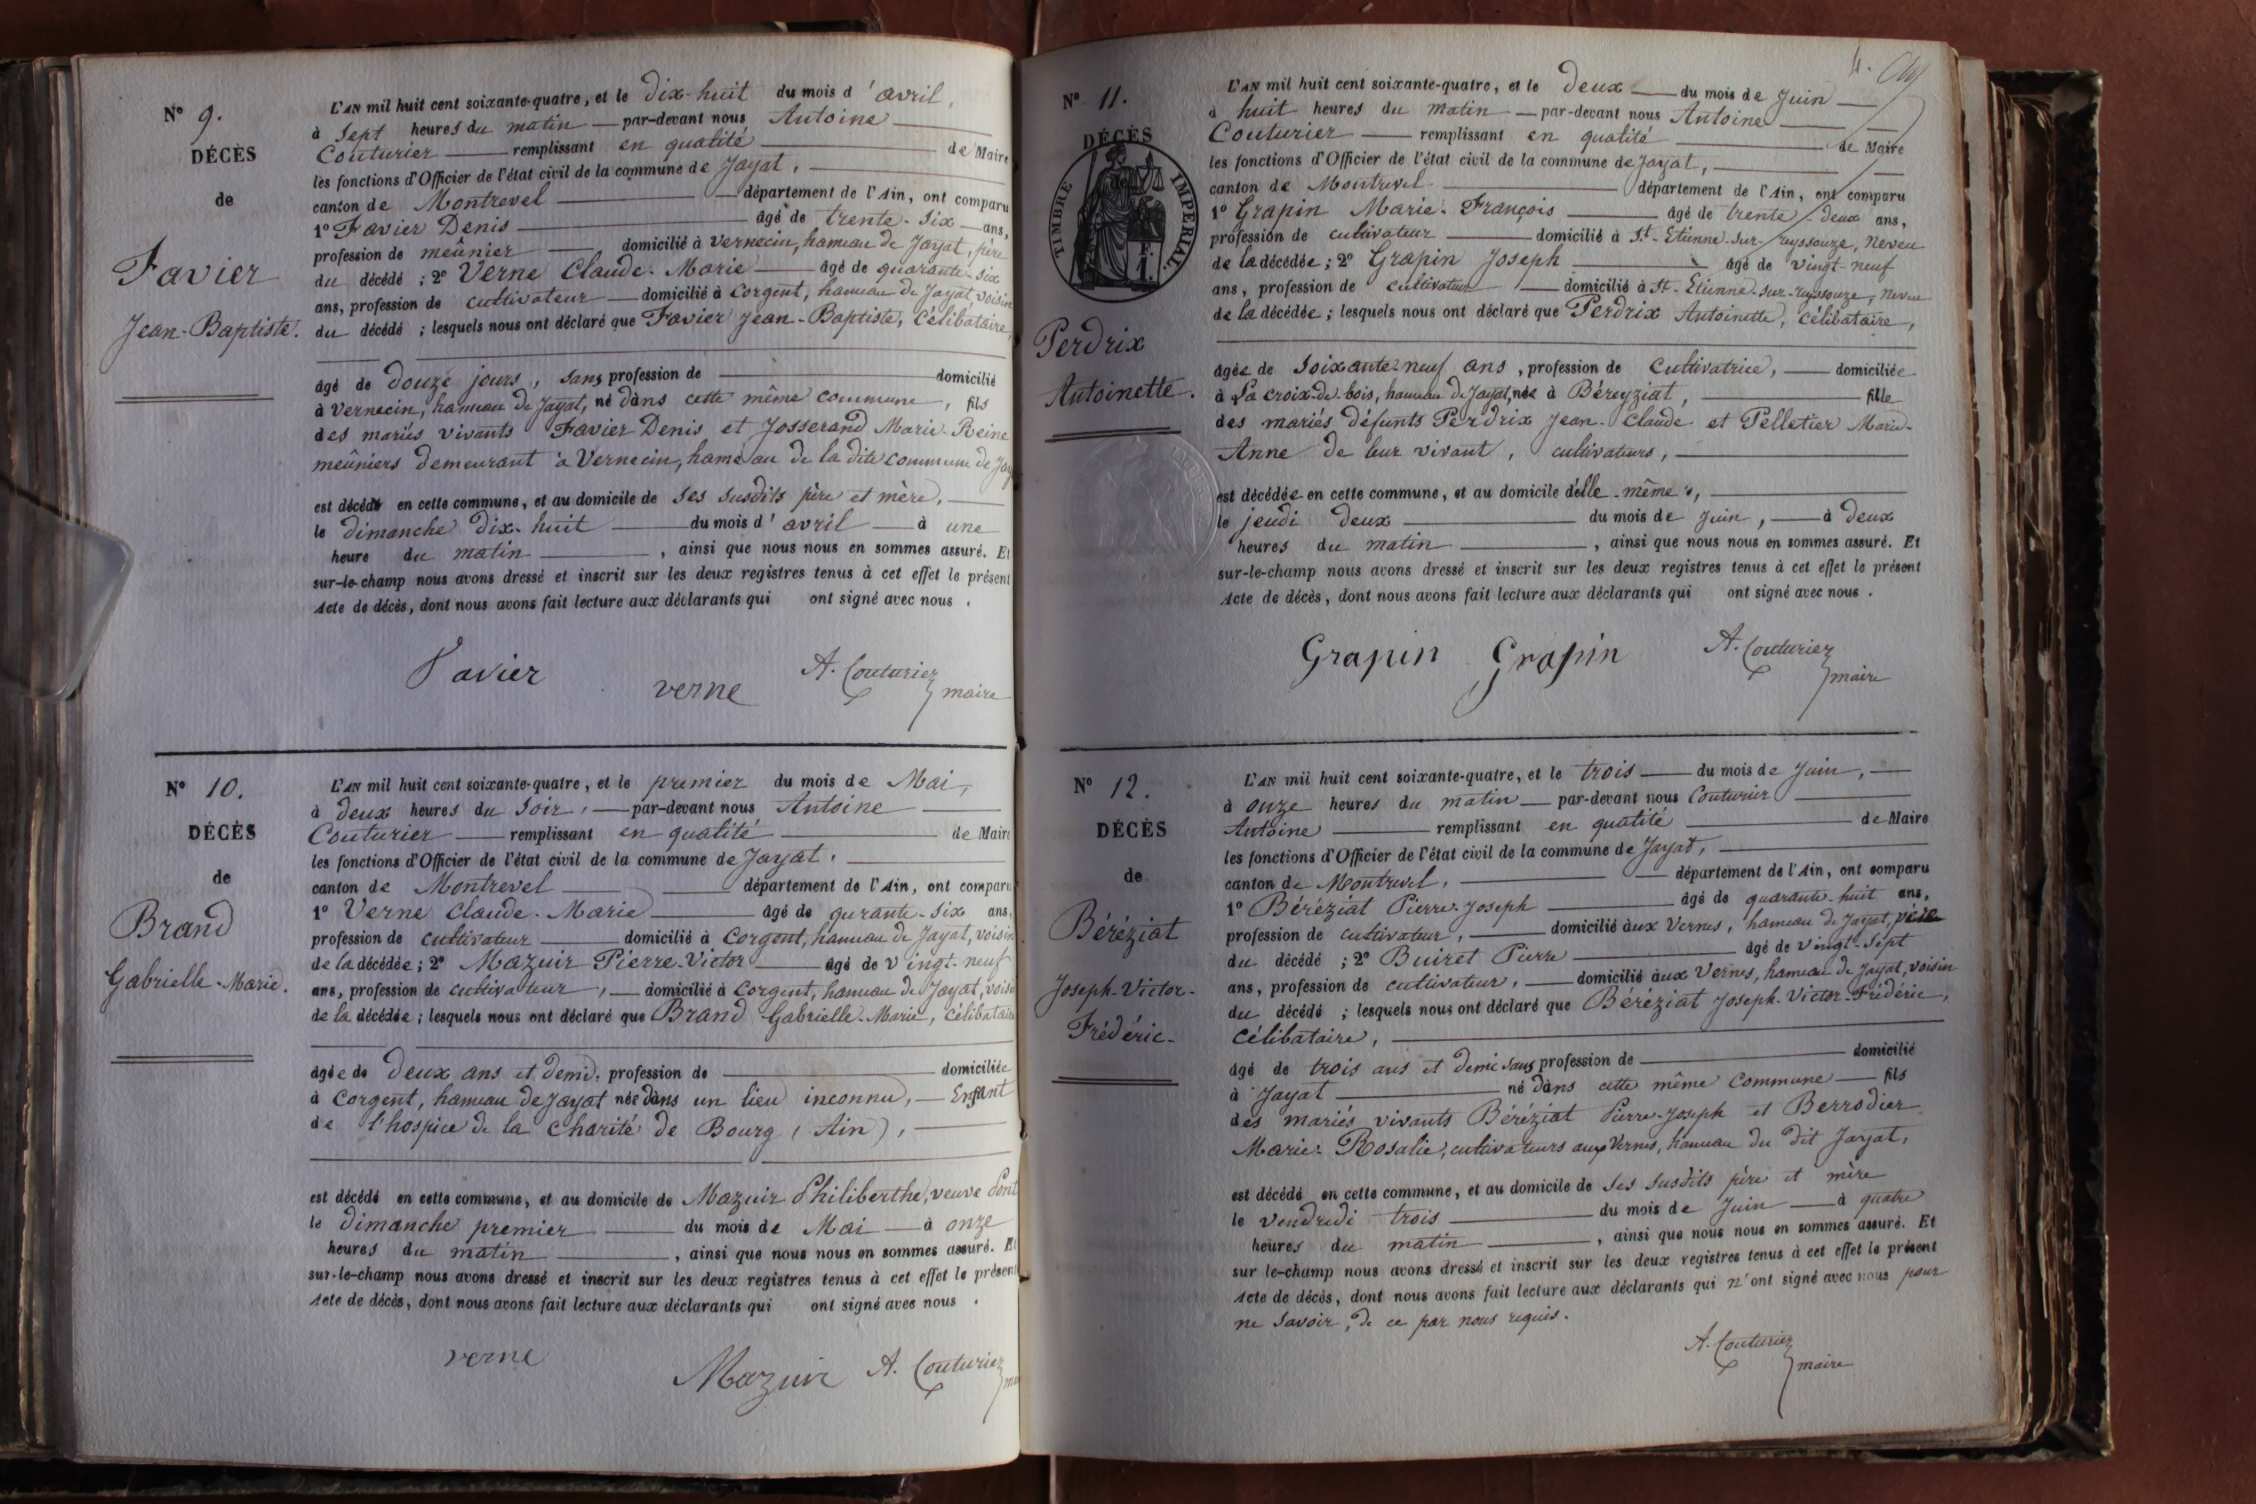 N° 9.
DÉCÈS
de
Favier
Jean-Baptiste.
L'AN mil huit cent soixante-quatre, et le dix-huit du mois d'avril,
à sept heures du matin par-devant nous Antoine
Couturier remplissant en qualité de Maire
les fonctions d'Officier de l'état civil de la commune de Jayat,
canton de Montrevel département de l'Ain, ont comparu
1° Favier Denis âgé de trente-six ans,
profession de meûnier domicilié à Vernecin, hameau de Jayat, père
du décédé ; 2° Verne Claude-Marie âgé de quarante-six
ans, profession de cultivateur domicilié à Corgent, hameau de Jayat, voisin
du décédé ; lesquels nous ont déclaré que Favier Jean-Baptiste, célibataire,
âgé de douze jours, sans profession de domicilié
à Vernecin, hameau de Jayat, né dans cette même commune, fils
des mariés vivants Favier Denis et Josserand Marie-Reine
meûniers demeurant à Vernecin, hameau de la dite commune de Jay
est décédé en cette commune, et au domicile de ses susdits père et mère,
le dimanche dix-huit du mois d'avril à une
heure du matin, ainsi que nous nous en sommes assuré. Et
sur-le-champ nous avons dressé et inscrit sur les deux registres tenus à cet effet le présent
Acte de décès, dont nous avons fait lecture aux déclarants qui ont signé avec nous.
Favier verne A. Couturier
maire
N° 10.
DÉCÈS
de
Brand
Gabrielle-Marie.
L'AN mil huit cent soixante-quatre, et le premier du mois de Mai,
à deux heures du soir, par-devant nous Antoine
Couturier remplissant en qualité de Maire
les fonctions d'Officier de l'état civil de la commune de Jayat.
canton de Montrevel département de l'Ain, ont comparu
1° Verne Claude-Marie âgé de qurante-six ans,
profession de cultivateur domicilié à Corgent, hameau de Jayat, voisin
de la décédée ; 2° Mazuir Pierre-Victor âgé de vingt-neuf
ans, profession de cultivateur, domicilié à Corgent, hameau de Jayat, voisi
de la décédée ; lesquels nous ont déclaré que Brand Gabrielle-Marie, célibataire
âgée de deux ans et demi. profession de domiciliée
à Corgent, hameau de Jayat née dans un lieu inconnu, Enfant
de l'hospice de la Charité de Bourg (Ain),
est décédé en cette commune, et au domicile de Mazuir Philiberthe, veuve Pont
le dimanche premier du mois de Mai à onze
heures du matin, ainsi que nous nous en sommes assuré. Et
sur-le-champ nous avons dressé et inscrit sur les deux registres tenus à cet effet le présent
Acte de décès, dont nous avons fait lecture aux déclarants qui ont signé avec nous.
verne Mazuir A. Couturier
4.
N° 11.
DÉCÈS
TIMBRE IMPERIAL.
1 F.
Perdrix
Antoinette.
L'AN mil huit cent soixante-quatre, et le deux du mois de Juin
à huit heures du matin par-devant nous Antoine
Couturier remplissant en qualité de Maire
les fonctions d'Officier de l'état civil de la commune de Jayat,
canton de Montrevel département de l'Ain, ont comparu
1° Grapin Marie-François âgé de trente-deux ans,
profession de cultivateur domicilié à St-Etienne-sur-reyssouze, neveu
de la décédée ; 2° Grapin Joseph âgé de vingt-neuf
ans, profession de cultivateur domicilié à St-Etienne-sur-reyssouze, neveu
de la décédée ; lesquels nous ont déclaré que Perdrix Antoinette, célibataire,
âgée de soixante-neuf ans, profession de cultivatrice, domiciliée
à La croix-de-bois, hameau de Jayat, née à Béreyziat, fille
des mariés défunts Perdrix Jean-Claude et Pelletier Marie-
Anne de leur vivant, cultivateurs,
est décédée en cette commune, et au domicile d'elle-même,
le jeudi deux du mois de Juin, à deux
heures du matin, ainsi que nous nous en sommes assuré. Et
sur-le-champ nous avons dressé et inscrit sur les deux registres tenus à cet effet le présent
Acte de décès, dont nous avons fait lecture aux déclarants qui ont signé avec nous.
Grapin Grapin A. Couturier
maire
N° 12.
DÉCÈS
de
Béréziat
Joseph-Victor-
Frédéric-
L'AN mil huit cent soixante-quatre, et le trois du mois de Juin,
à onze heures du matin par-devant nous Couturier
Antoine remplissant en qualité de Maire
les fonctions d'Officier de l'état civil de la commune de Jayat,
canton de Montrevel, département de l'Ain, ont comparu
1° Béréziat Pierre-Joseph âgé de quarante-huit ans,
profession de cultivateur, domicilié aux Vernes, hameau de Jayat, père
du décédé ; 2° Buiret Pierre âgé de vingt-sept
ans, profession de cultivateur, domicilié aux Vernes, hameau de Jayat, voisin
du décédé ; lesquels nous ont déclaré que Béréziat Joseph-Victor-Frédéric,
célibataire,
âgé de trois ans et demi sans profession de domicilié
à Jayat né dans cette même commune fils
des mariés vivants Béréziat Pierre-Joseph et Berrodier
Marie-Rosalie, cultivateurs aux Vernes, hameau du dit Jayat,
est décédé en cette commune, et au domicile de ses susdits père et mère
le vendredi trois du mois de Juin à quatre
heures du matin, ainsi que nous nous en sommes assuré. Et
sur le-champ nous avons dressé et inscrit sur les deux registres tenus à cet effet le présent
Acte de décès, dont nous avons fait lecture aux déclarants qui n'ont signé avec nous pour
ne savoir, de ce par nous requis.
A. Couturier
maire